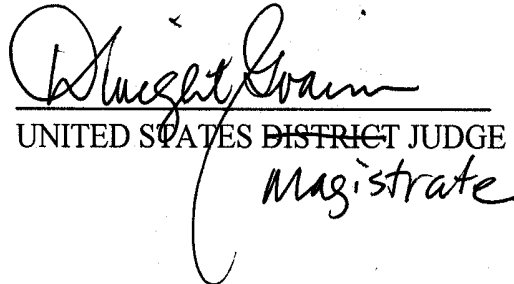 Dwight Goains
UNITED STATES DISTRICT JUDGE
Magistrate